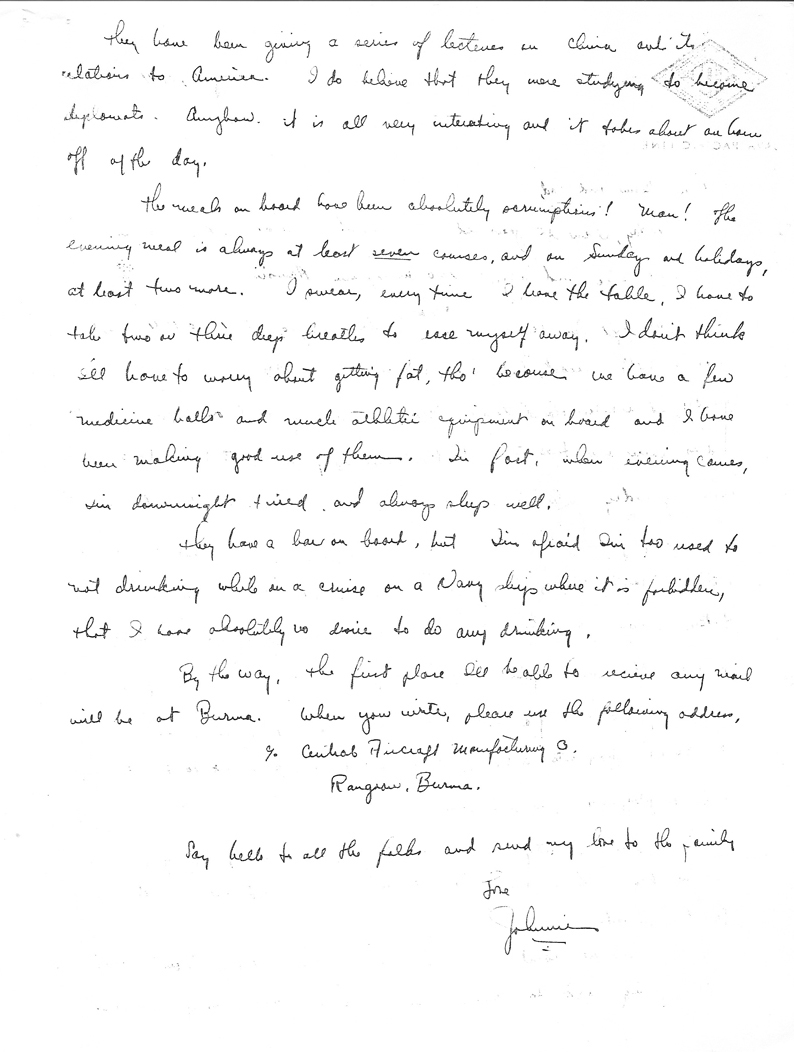 They have been giving a series of lectures on China and its
relations to America. I do believe that they were studying to become
diplomats. Anyhow. it is all very interesting and it takes about an hour
off of the day.
The meals on board have been absolutely scrumptious! Man! The
evening meal is always at least seven courses, and on Sundays and holidays,
at least two more. I swear, every time I leave the table, I have to
take two or three deep breaths to ease myself away. I don't think
I'll have to worry about getting fat, tho' because we have a few
medicine balls and much athletic equipment on board and I have
been making good use of them. In fact, when evening comes,
I'm downright tired and always sleep well.
They have a bar on board, but I'm afraid I'm too used to
not drinking while on a cruise on a Navy ship where it is forbidden,
that I have absolutely no desire to do any drinking.
By the way, the first place I'll be able to recieve any mail
will be at Burma. When you write, please use the following address,
% Central Aircraft Manufacturing Co.
Rangoon, Burma.
Say hello to all the folks and send my love to the family
Love
Johnnie